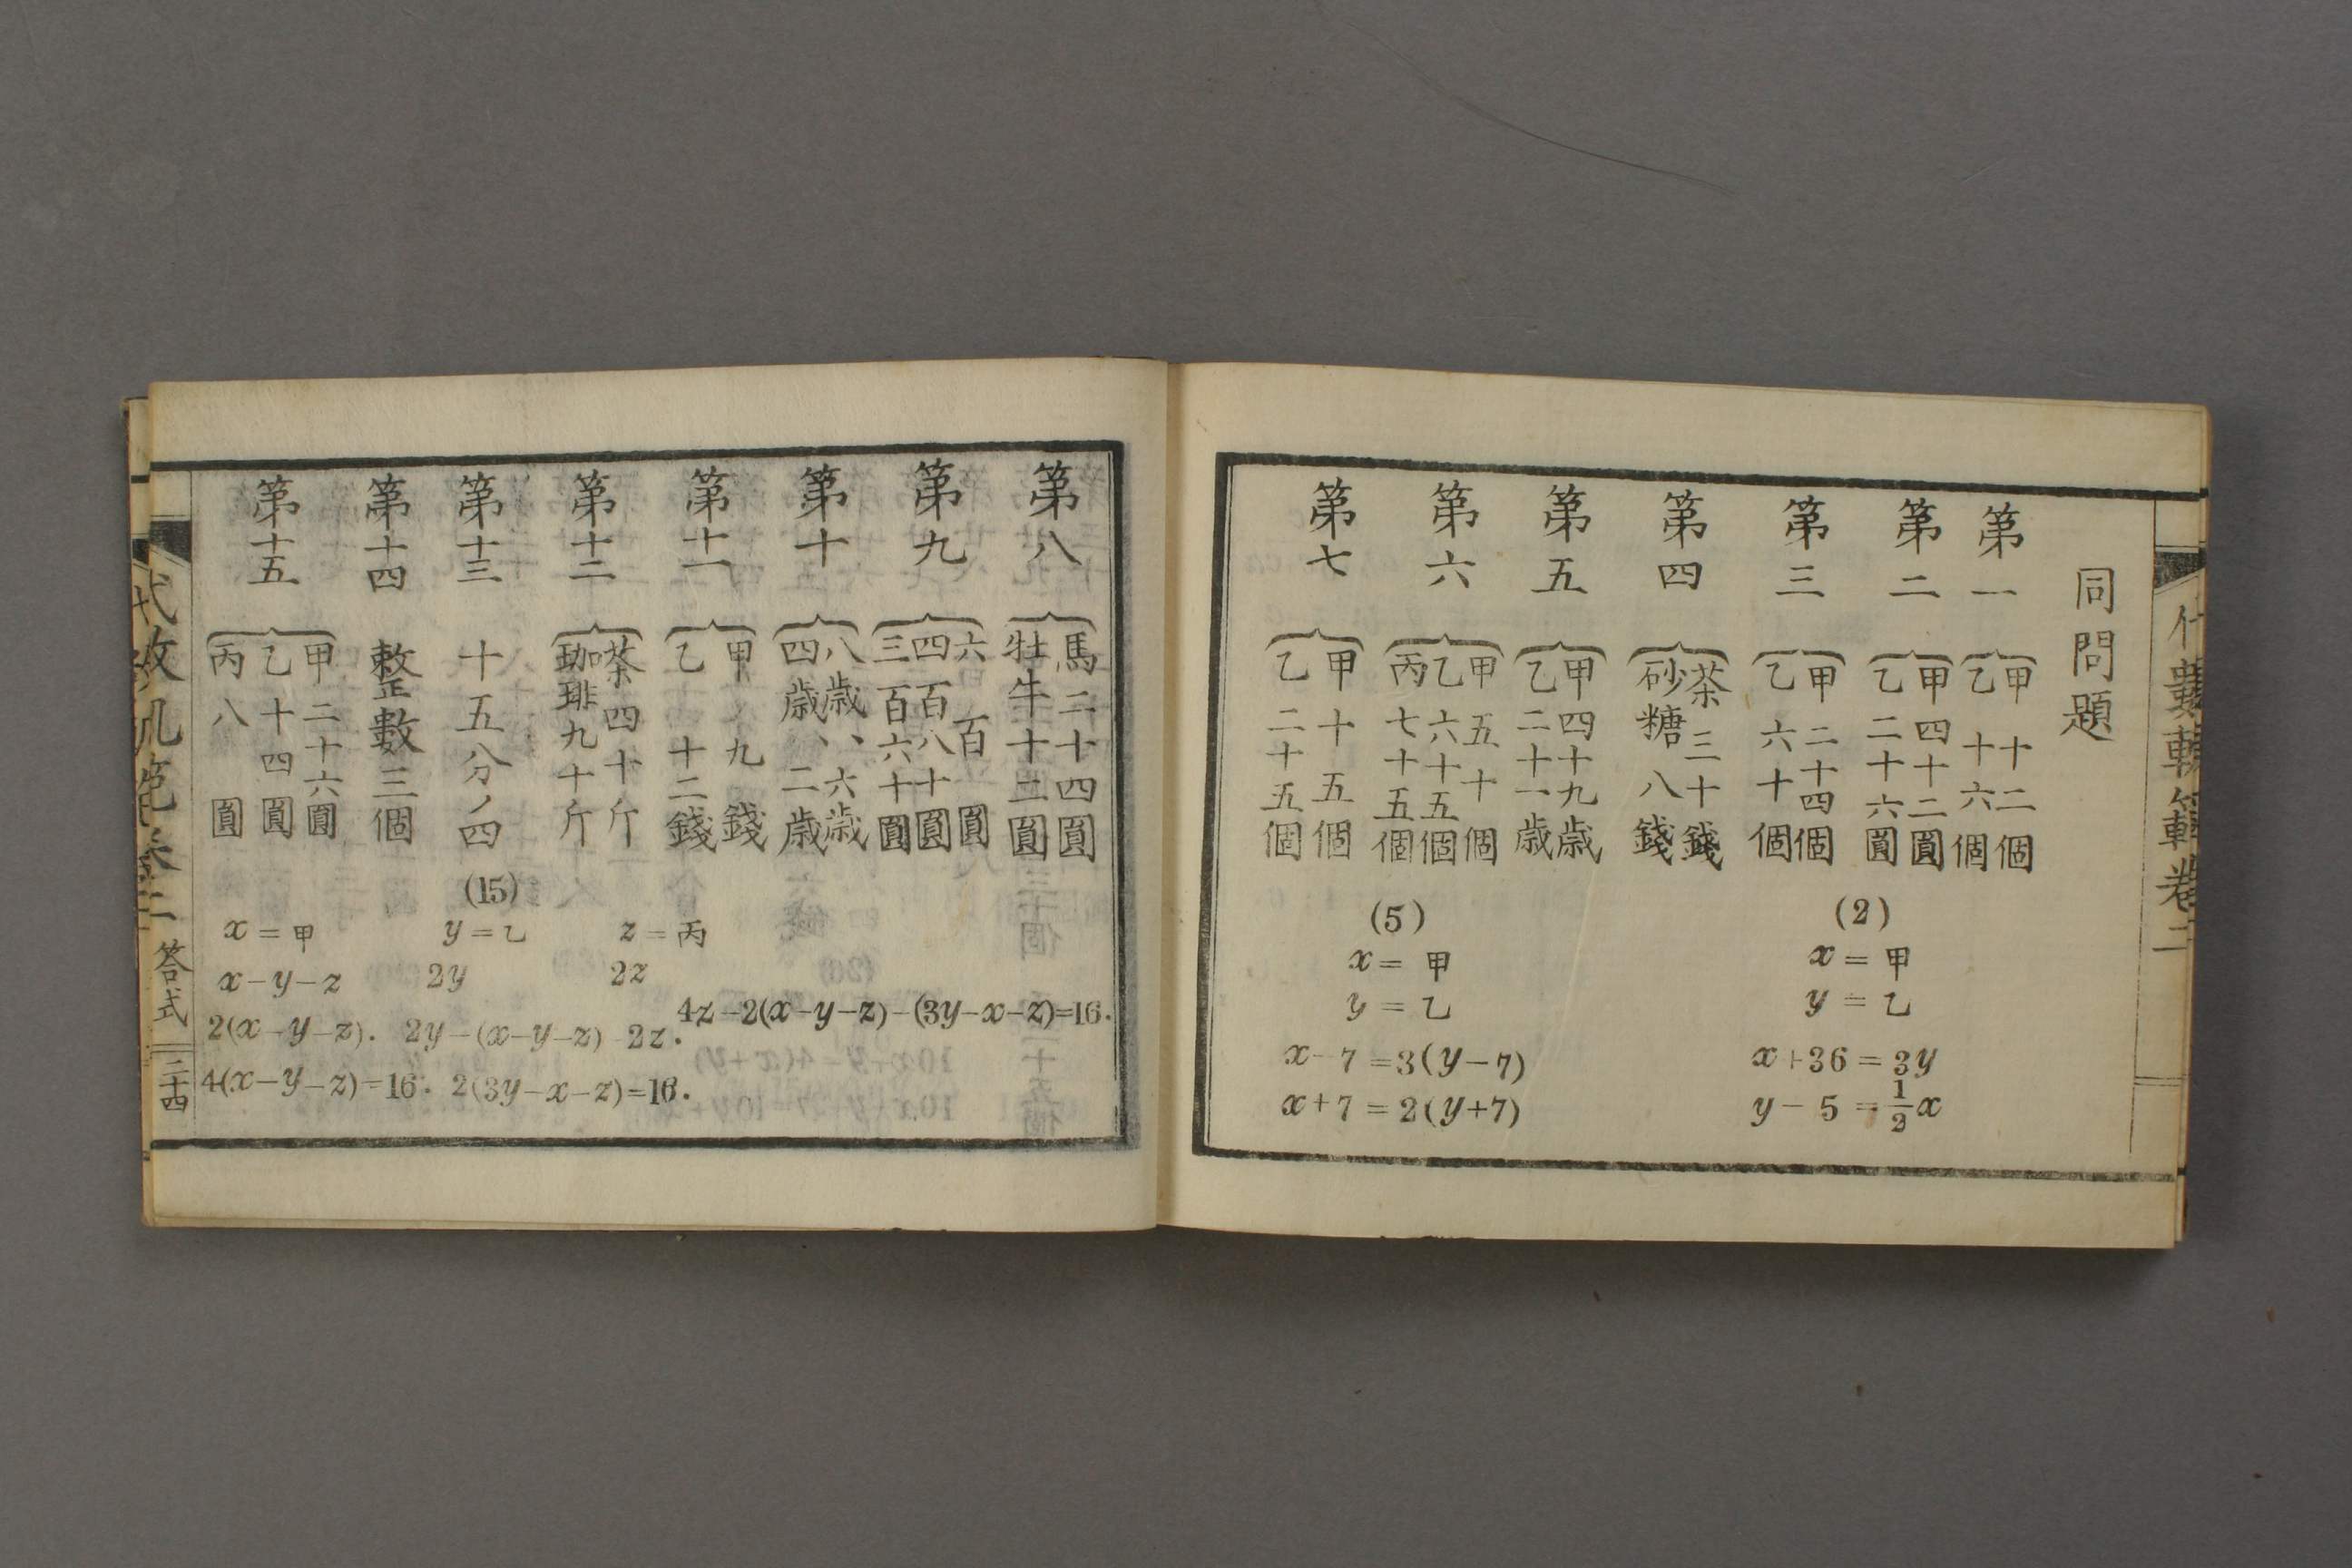 同問題
第一 甲 十二個
乙 十六個
第二 甲四十二圓
乙二十六圓
第三 甲 二十四個
乙 六十個
第四 茶三十錢
砂糖 八錢
第五 甲四十九歳
乙二十一歳
第六 甲 五十個
乙六十五個
丙七十五個
第七 甲十五個
乙二十五個
(2)
x = 甲
y = 乙
x+36 = 3y
y - 5 = 1/2 x
(5)
x = 甲
y = 乙
x-7 = 3(y-7)
x+7 = 2(y+7)
第八 馬二十四圓
牡牛十二圓
第九 六百圓
四百八十圓
三百六十圓
第十 八歳、六歳
四歳、二歳
第十一 甲 九錢
乙 十二錢
第十二 茶四十斤
珈琲九十斤
第十三 十五分ノ四
第十四 整數三個
第十五 甲二十六圓
乙十四圓
丙八圓
(15)
x = 甲 y = 乙 z = 丙
x-y-z 2y 2z
2(x-y-z). 2y-(x-y-z)-2z. 4z-2(x-y-z)-(3y-x-z)=16.
4(x-y-z)=16. 2(3y-x-z)=16.
答式 二十四